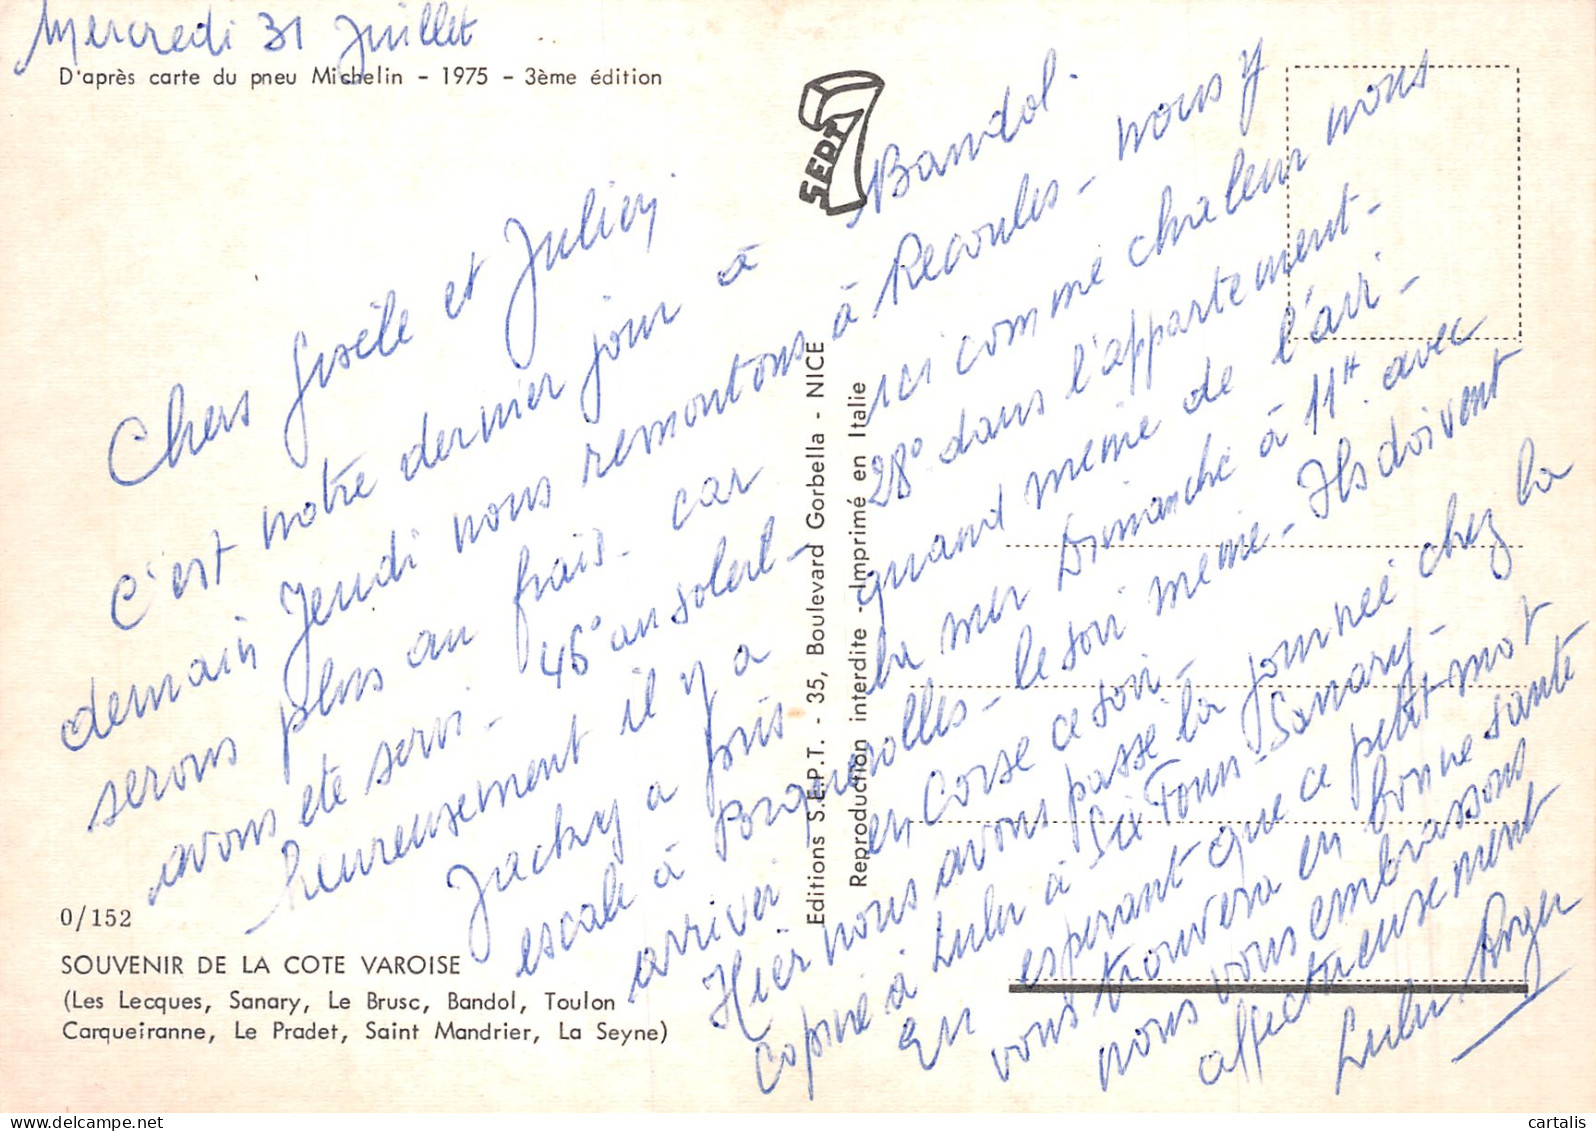 Mercredi 31 Juillet
D'après carte du pneu Michelin - 1975 - 3ème édition
SEPT
7
Chers Gisèle et Julien,
C'est notre dernier jour à Bandol.
demain Jeudi nous remontons à Recoules - nous y
serons plus au frais. car ici comme chaleur nous
avons été servi - 46° au soleil - 28° dans l'appartement -
heureusement il y a quand même de l'air -
Jacky a pris la mer Dimanche à 11H. avec
escale à Porquerolles - le soir même - Ils doivent
arriver en Corse ce soir -
Hier nous avons passé la journée chez la
copine à Lulu à Six Fours - Sanary -
En espérant que ce petit mot
vous trouvera en bonne santé
nous vous embrassons
affectueusement
Lulu Roger
Editions S.E.P.T. - 35, Boulevard Gorbella - NICE
Reproduction interdite - Imprimé en Italie
0/152
SOUVENIR DE LA COTE VAROISE
(Les Lecques, Sanary, Le Brusc, Bandol, Toulon
Carqueiranne, Le Pradet, Saint Mandrier, La Seyne)
cartalis delcampe.net